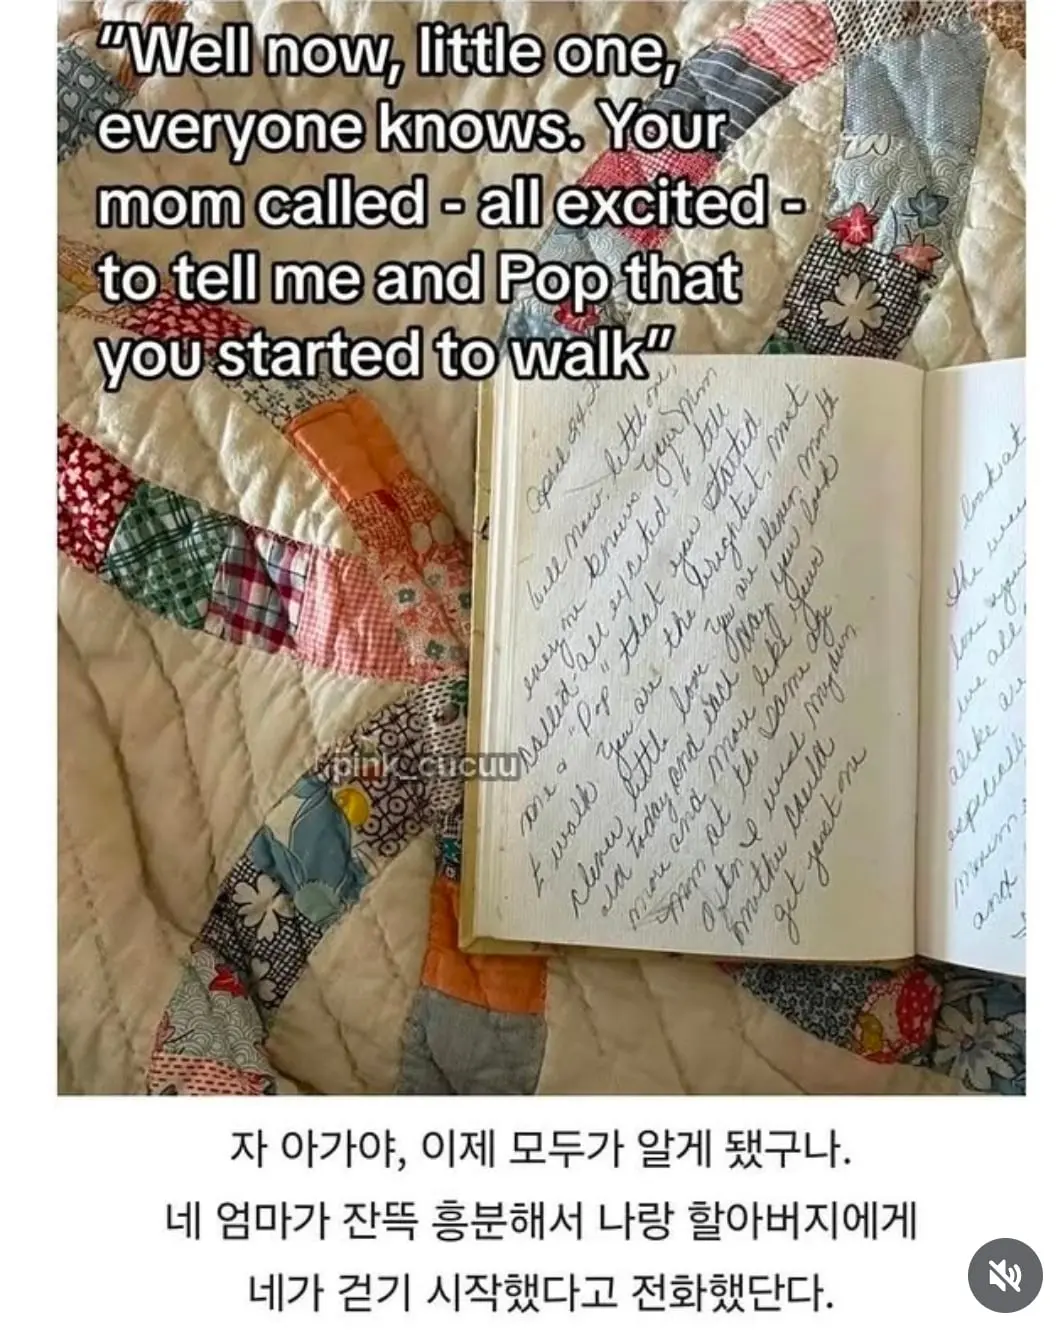 “Well now, little one,
everyone knows. Your
mom called - all excited -
to tell me and Pop that
you started to walk”
Well now, little one,
everyone knows Your Mom
called - all excited - to tell
me & "Pop" that you started
to walk You are the brightest, most
clever little love You are eleven month
old today and each day you look
more and more like your
Mom at the same age
often I wish my own
mother could
get just one
look at
alike
especially
and
pink_cucuu
자 아가야, 이제 모두가 알게 됐구나.
네 엄마가 잔뜩 흥분해서 나랑 할아버지에게
네가 걷기 시작했다고 전화했단다.